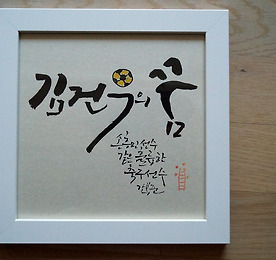 김건우의 꿈
손흥민 선수
같은 훌륭한
축구선수
김건우